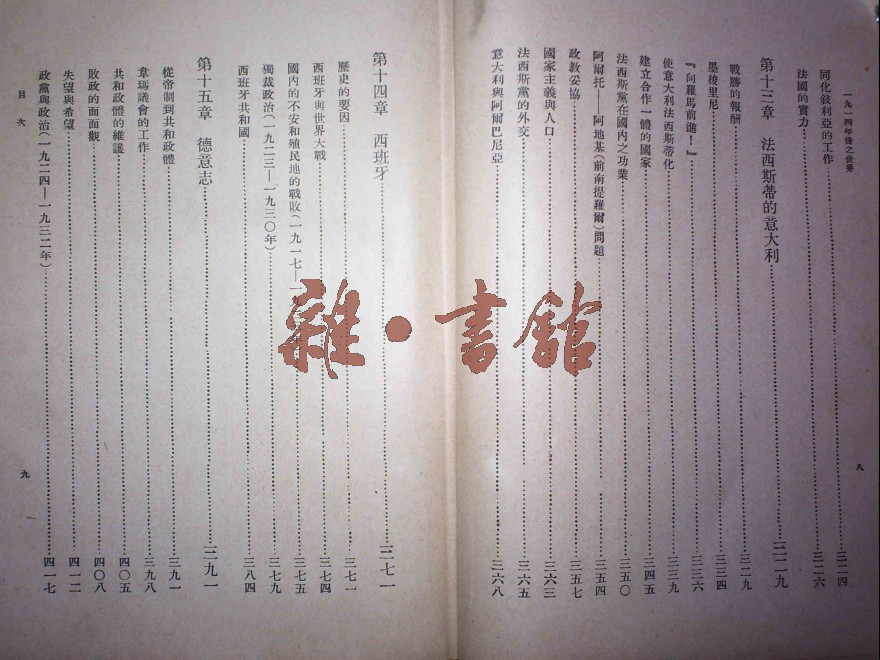 一九一四年後之世界
八
同化敍利亞的工作 三二四
法國的實力 三二六
第十三章 法西斯蒂的意大利 三二九
戰勝的報酬 三二九
墨梭里尼 三三四
『向羅馬前進！』 三三六
使意大利法西斯蒂化 三三九
建立合作一體的國家 三四五
法西斯黨在國內之功業 三五〇
阿爾托——阿地基(前南提羅爾)問題 三五四
政教妥協 三五七
國家主義與人口 三六三
法西斯黨的外交 三六五
意大利與阿爾巴尼亞 三六八
第十四章 西班牙 三七一
歷史的要因 三七一
西班牙與世界大戰 三七四
國內的不安和殖民地的戰敗(一九一七—一 三七五
獨裁政治(一九二三—一九三〇年) 三七九
西班牙共和國 三八四
第十五章 德意志 三九一
從帝制到共和政體 三九一
韋瑪議會的工作 三九八
共和政體的維護 四〇五
敗政的面面觀 四〇八
失望與希望 四一二
政黨與政治(一九二四—一九三二年) 四一七
目次
九
雜·書館